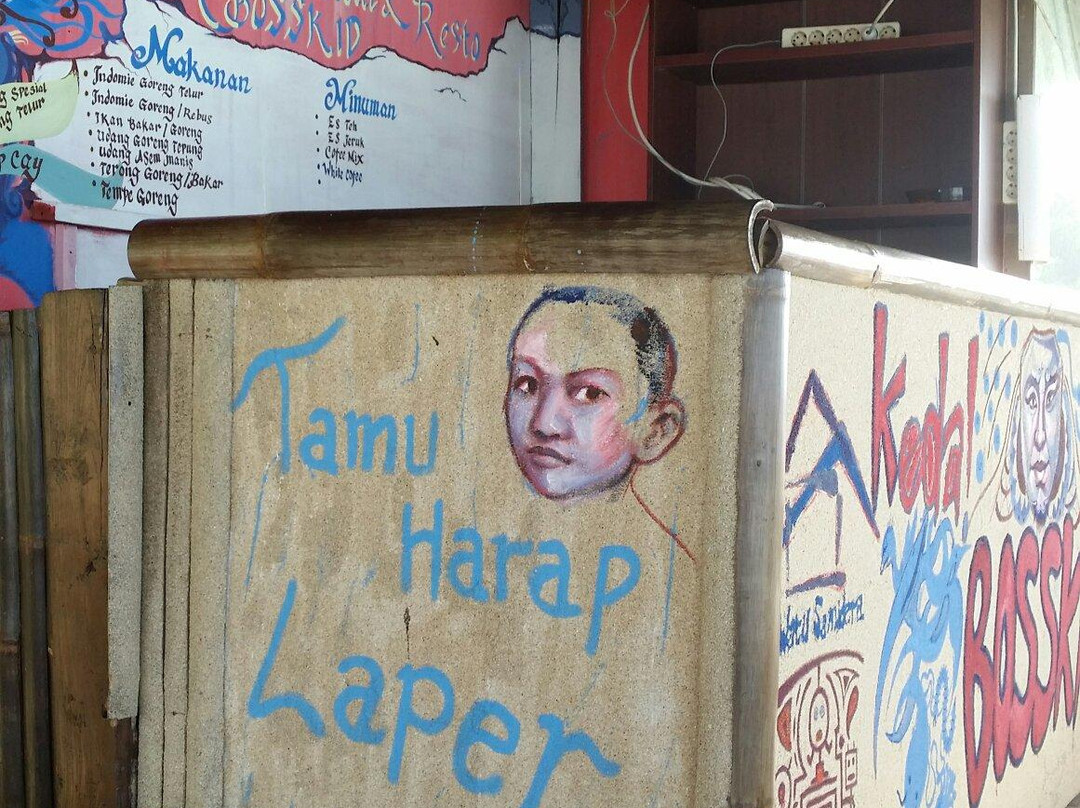 Resto
BOSSKID
Makanan
Indomie Goreng Telur
Indomie Goreng/Rebus
Ikan Bakar/Goreng
Udang Goreng Tepung
Udang Asem Manis
Terong Goreng/Bakar
Tempe Goreng
Minuman
Es Teh
Es Jeruk
Cofee Mix
White Cofee
Spesial
Telur
Cay
Tamu
Harap
Laper
Kedai
BOSSK
Samudera